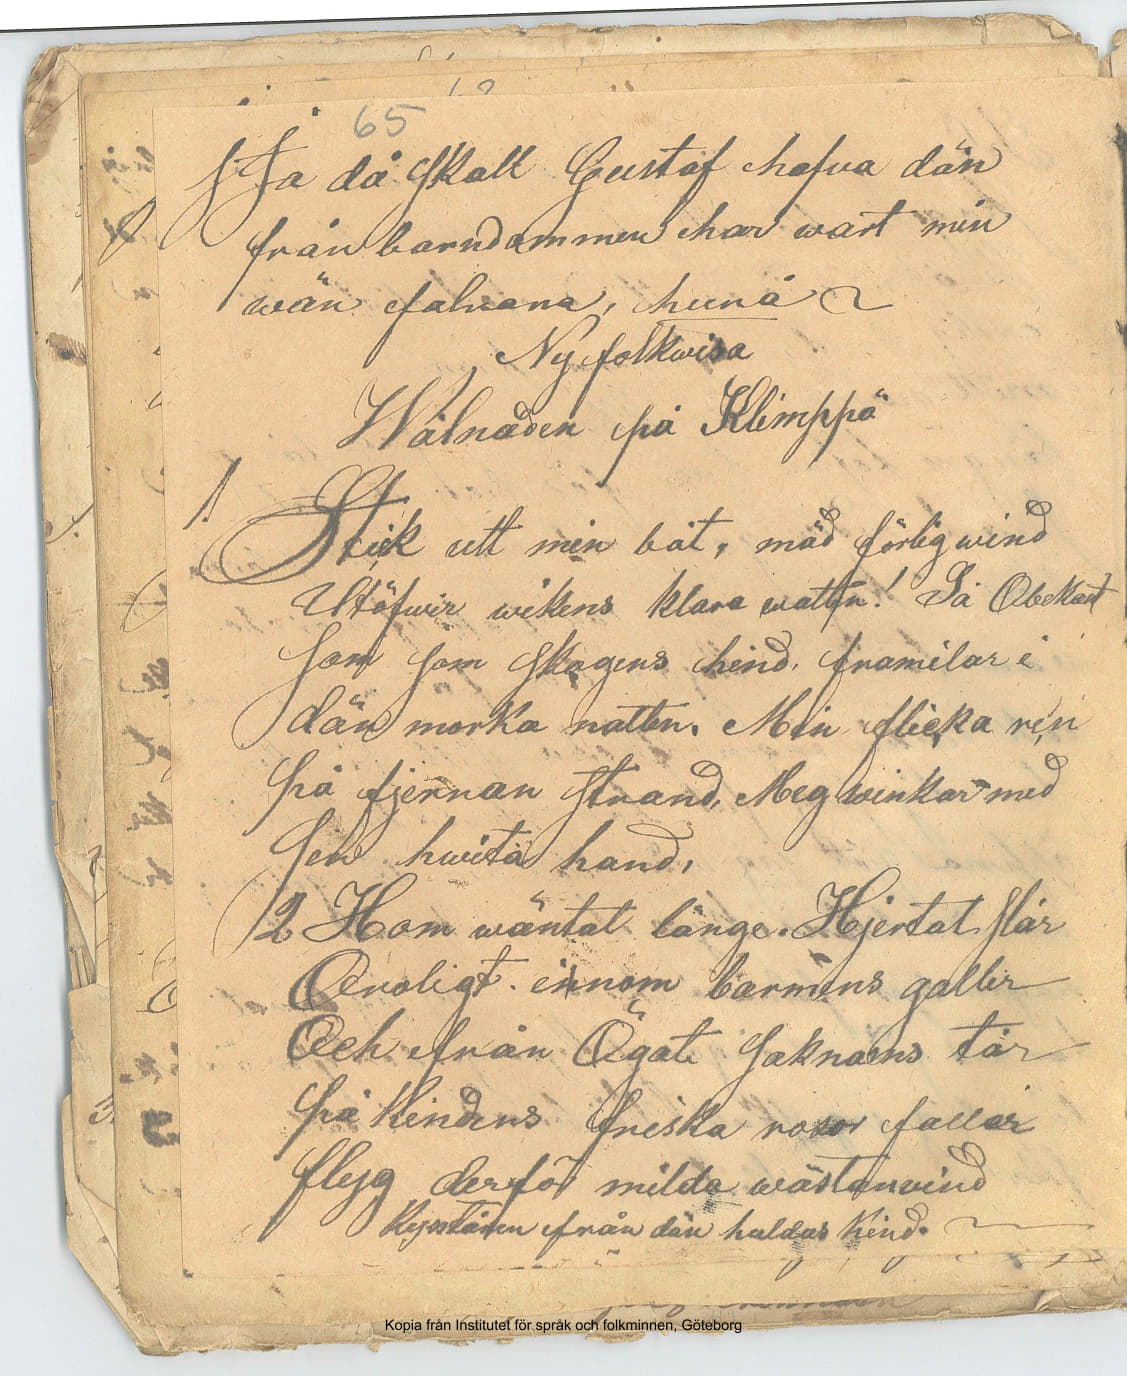 65
Ja då skall Gustaf hafva dän
från barndommen har wart min
wän falirana, hurrå
Ny folkwisa
Wålnaden på Klimppö
1
Stick utt min båt, mäd förlig wind
Utöfwir wikens klara wattn! Så Obekant
som som skogens hind, framilar i
dän morka natten. Min flicka ren
på fjernan strand, Meg winkar med
sen hwita hand,
2 Hom wäntat länge. Hjertat slår
Oroligt innom barmens galler
Och från Ögat saknaens tår
på kindens friska rosor fallar
flyg derför milda wästanvind
Kyss tåren från dän huldas kind.
Kopia från Institutet för språk och folkminnen, Göteborg